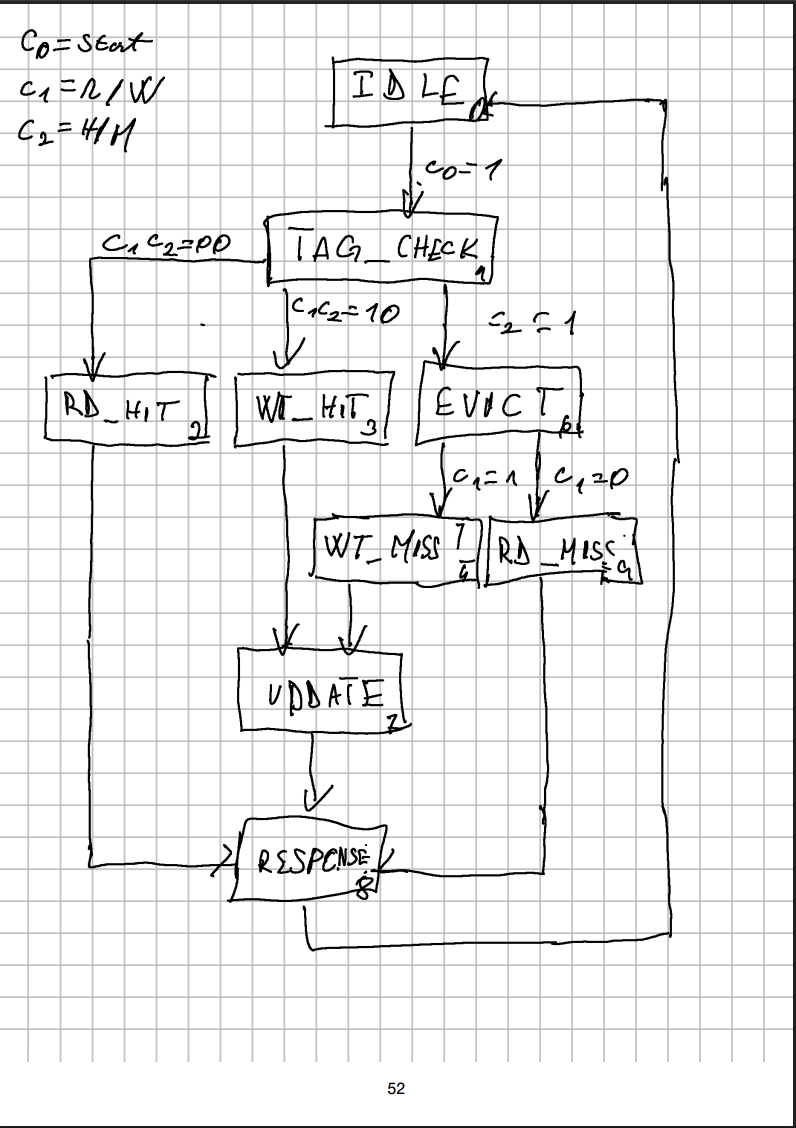 C0 = Start
C1 = R/W
C2 = H/M
IDLE 0
C0=1
TAG_CHECK 1
C1C2=00
C1C2=10
C2=1
RD_HIT 2
WT_HIT 3
EVICT
C1=1
C1=0
WT_MISS
RD_MISS
UPDATE
RESPONSE 8
52